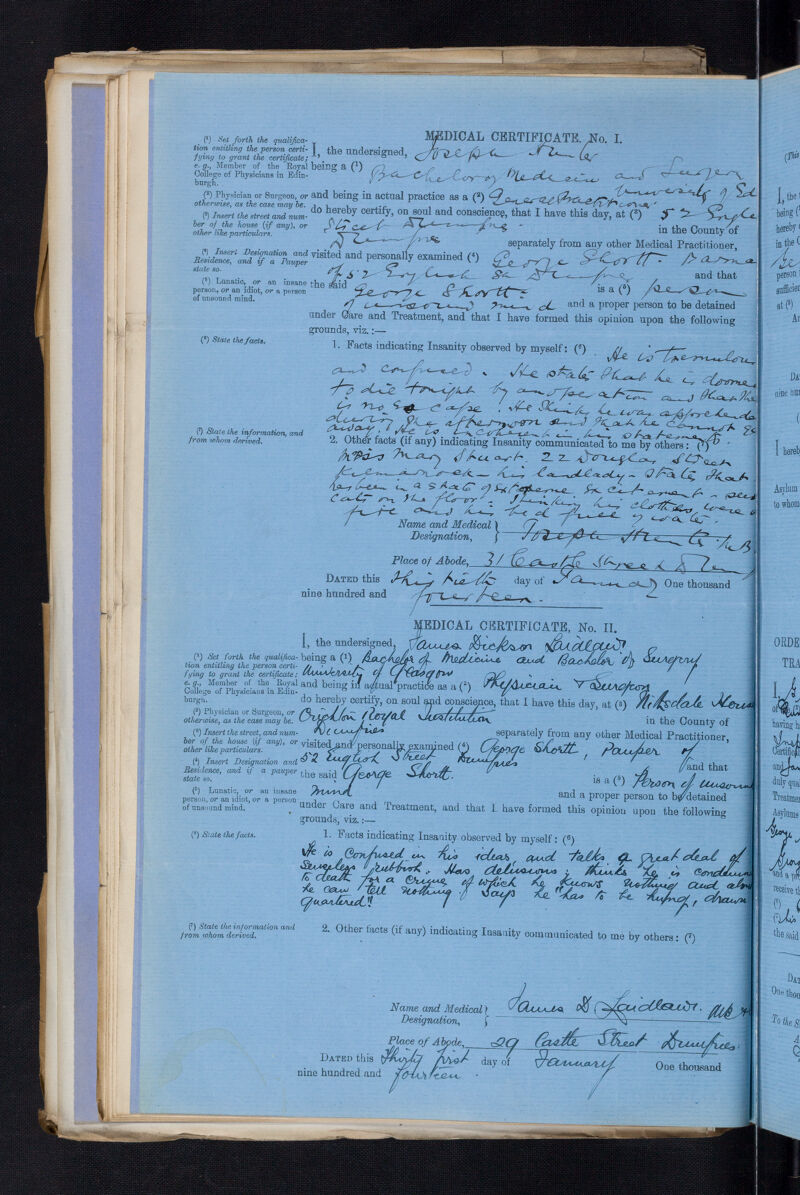 MEDICAL CERTIFICATE, No. I.
(¹) Set forth the qualifica-
tion entitling the person certi-
fying to grant the certificate;
e. g., Member of the Royal
College of Physicians in Edin-
burgh.
(²) Physician or Surgeon, or
otherwise, as the case may be.
(³) Insert the street and num-
ber of the house (if any), or
other like particulars.
(⁴) Insert Designation and
Residence, and if a Pauper
state so.
(⁵) Lunatic, or an insane
person, or an idiot, or a person
of unsound mind.
(⁶) State the facts.
(⁷) State the information, and
from whom derived.
I, the undersigned, Joseph Hunter
being a (¹) Bachelor of Medicine and Surgery
University of Ed
and being in actual practice as a (²) General Practitioner
do hereby certify, on soul and conscience, that I have this day, at (³) 52 Engli
Street Dumfries in the County of
Dumfries separately from any other Medical Practitioner,
visited and personally examined (⁴) George Shortt
of 52 English St Dumfries and that
the said George Shortt is a (⁵) person
of unsound mind and a proper person to be detained
under Care and Treatment, and that I have formed this opinion upon the following
grounds, viz.:—
1. Facts indicating Insanity observed by myself: (⁶) He is tremulous
and confused. He states that he is doomed
to die tonight by an operation and that there
is no escape. He thinks he was apprehended
during the afternoon and that he cannot get
away. He is incoherent in his statements.
2. Other facts (if any) indicating Insanity communicated to me by others: (⁷)
Mary Stuart. 22 Douglas Street
Kilmarnock - his landlady - states that
he has been in a state of extreme excitement - sees
cats on the floor. Thinking his clothes were
fire and his bed full of water.
Name and Medical Designation, Joseph Hunter M.B.
Place of Abode, 31 Castle Street Dum
DATED this thirtieth day of January One thousand
nine hundred and fourteen.
MEDICAL CERTIFICATE, No. II.
(¹) Set forth the qualifica-
tion entitling the person certi-
fying to grant the certificate;
e. g., Member of the Royal
College of Physicians in Edin-
burgh.
(²) Physician or Surgeon, or
otherwise, as the case may be.
(³) Insert the street, and num-
ber of the house (if any), or
other like particulars.
(⁴) Insert Designation and
Residence, and if a pauper
state so.
(⁵) Lunatic, or an insane
person, or an idiot, or a person
of unsound mind.
(⁶) State the facts.
(⁷) State the information and
from whom derived.
I, the undersigned, James Dickson Laidlaw
being a (¹) Bachelor of Medicine and Bachelor of Surgery
University of Glasgow
and being in actual practice as a (²) Physician & Surgeon
do hereby certify, on soul and conscience, that I have this day, at (³) Nithsdale House
Crichton Royal Institution in the County of
Dumfries separately from any other Medical Practitioner,
visited and personally examined (⁴) George Shortt, Pauper of
52 English Street Dumfries and that
the said George Shortt. is a (⁵) Person of unsound
mind and a proper person to be detained
under Care and Treatment, and that I have formed this opinion upon the following
grounds, viz.:—
1. Facts indicating Insanity observed by myself: (⁶)
He is confused in his ideas, and talks a great deal of
senseless rubbish. Has delusions; thinks he is condemned
to death for a crime of which he knows nothing and also
he can tell nothing. Says he "has to be hung, drawn
quartered"!
2. Other facts (if any) indicating Insanity communicated to me by others: (⁷)
Name and Medical Designation, James D Laidlaw. MB
Place of Abode, 29 Castle Street Dumfries
DATED this Thirty first day of January One thousand
nine hundred and fourteen.